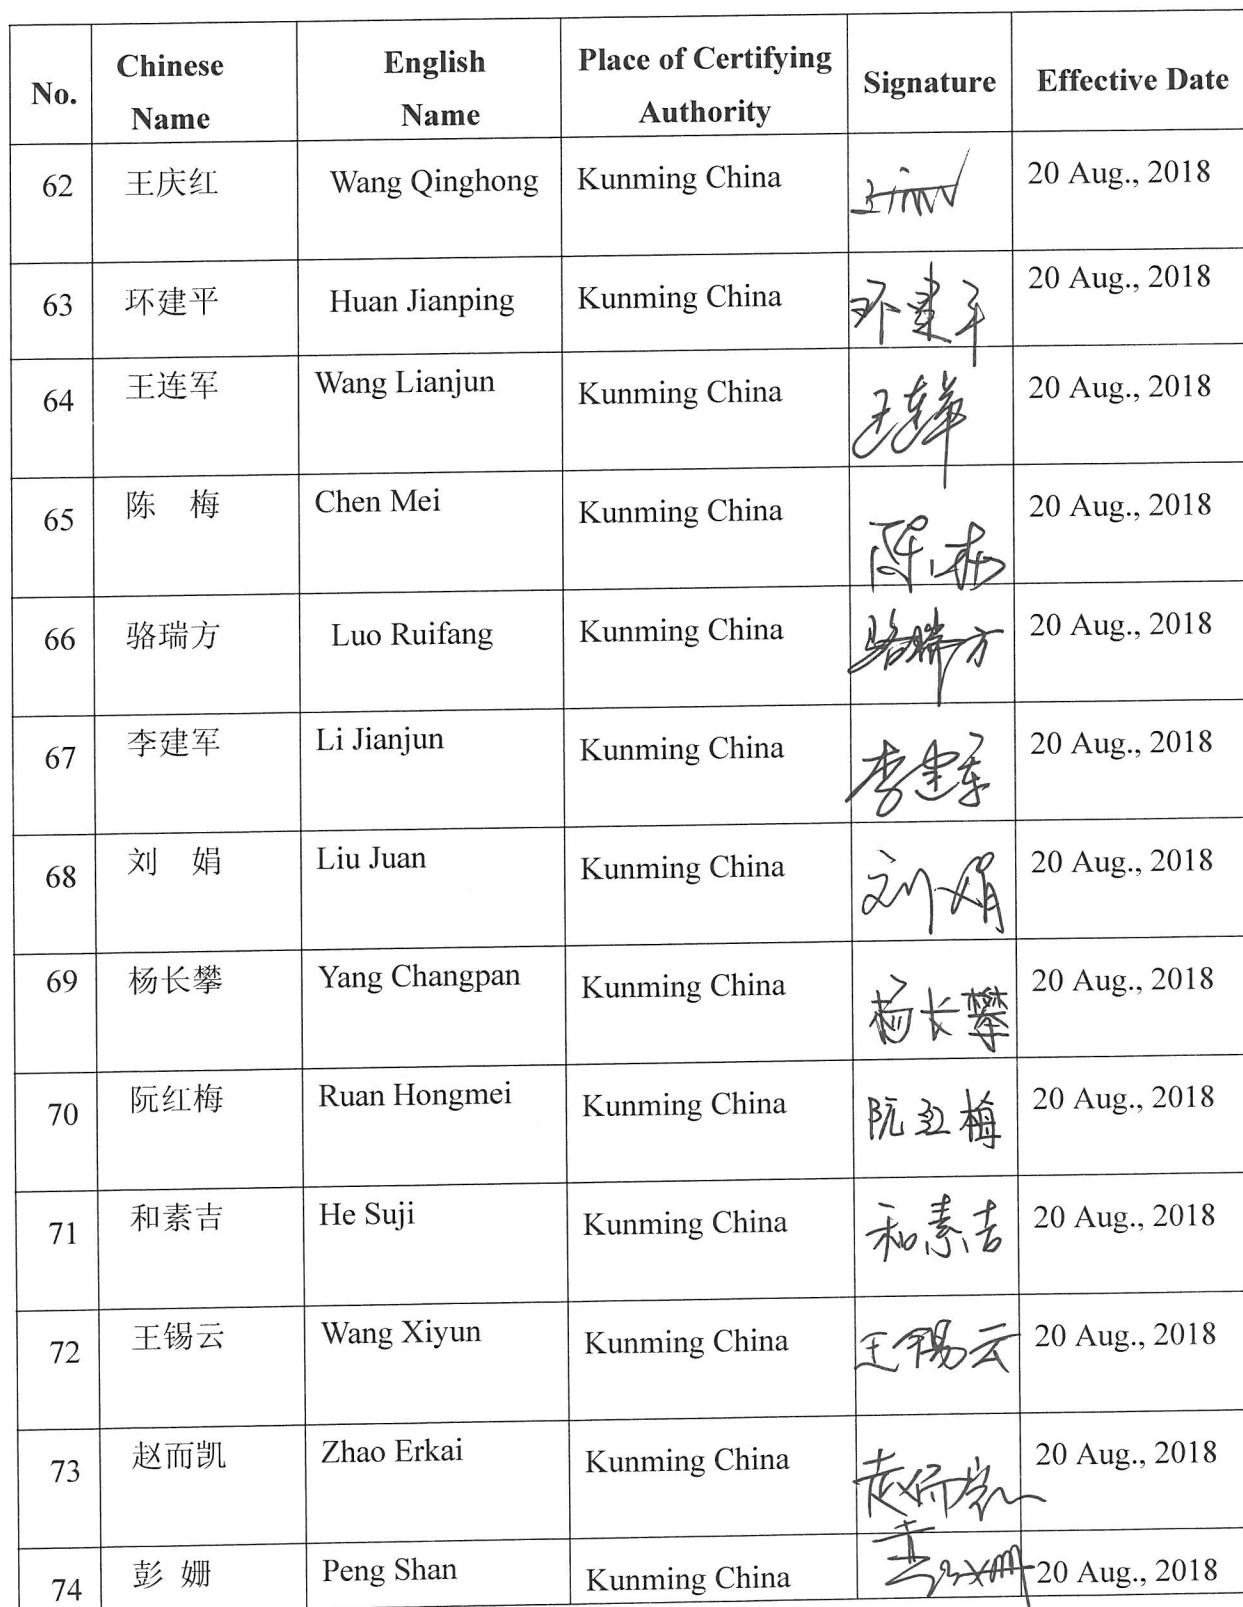 No. Chinese Name English Name Place of Certifying Authority Signature Effective Date
62 王庆红 Wang Qinghong Kunming China 20 Aug., 2018
63 环建平 Huan Jianping Kunming China 环建平 20 Aug., 2018
64 王连军 Wang Lianjun Kunming China 王连军 20 Aug., 2018
65 陈 梅 Chen Mei Kunming China 陈梅 20 Aug., 2018
66 骆瑞方 Luo Ruifang Kunming China 骆瑞方 20 Aug., 2018
67 李建军 Li Jianjun Kunming China 李建军 20 Aug., 2018
68 刘 娟 Liu Juan Kunming China 刘娟 20 Aug., 2018
69 杨长攀 Yang Changpan Kunming China 杨长攀 20 Aug., 2018
70 阮红梅 Ruan Hongmei Kunming China 阮红梅 20 Aug., 2018
71 和素吉 He Suji Kunming China 和素吉 20 Aug., 2018
72 王锡云 Wang Xiyun Kunming China 王锡云 20 Aug., 2018
73 赵而凯 Zhao Erkai Kunming China 赵而凯 20 Aug., 2018
74 彭 姗 Peng Shan Kunming China 20 Aug., 2018